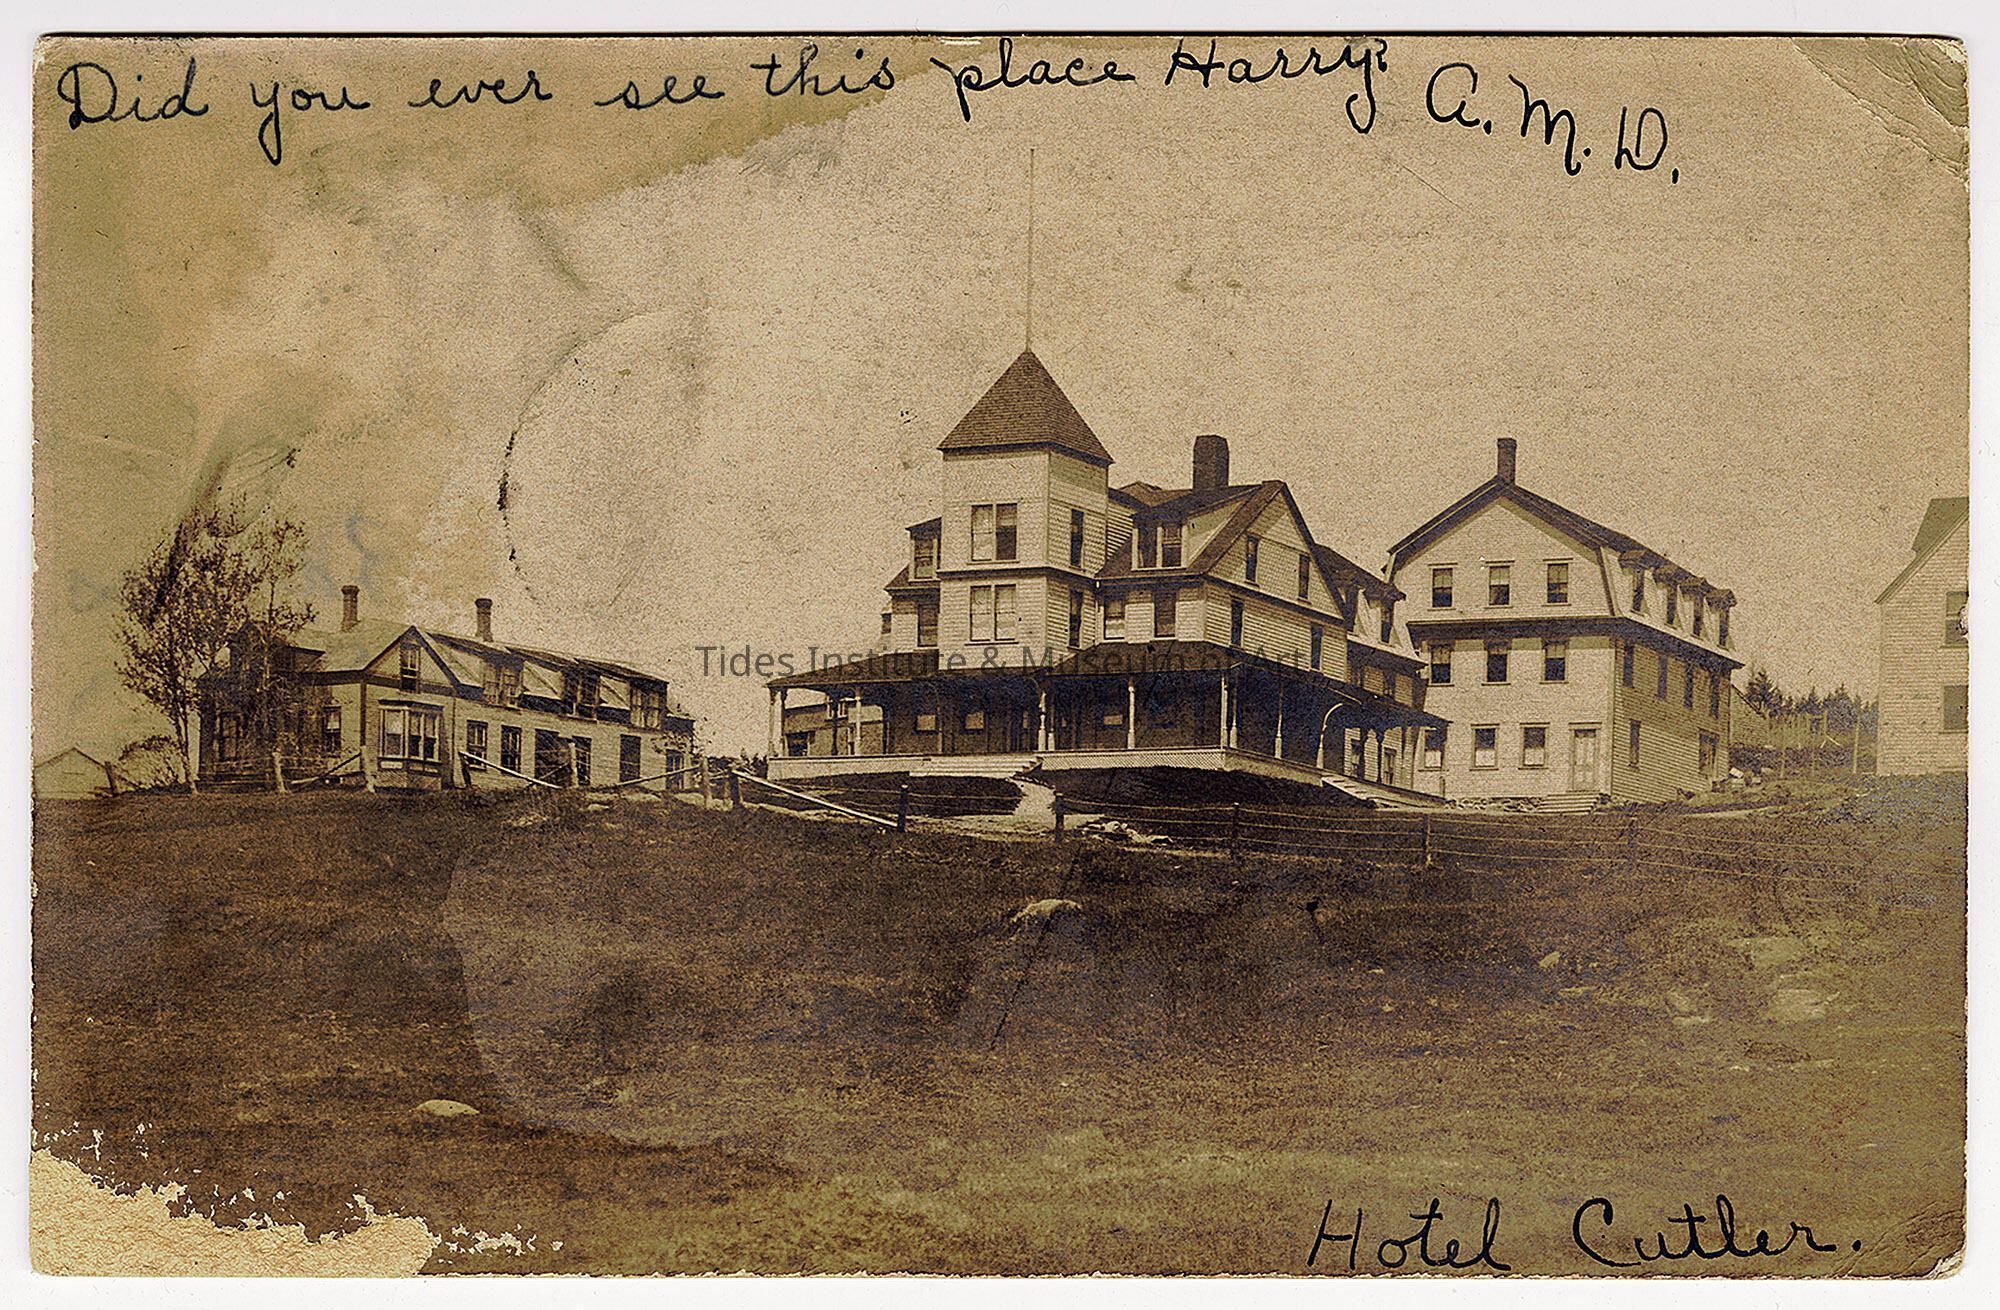 Did you ever see this place Harry? A. M. D.
Tides Institute & Museum of Art
Hotel Cutler.